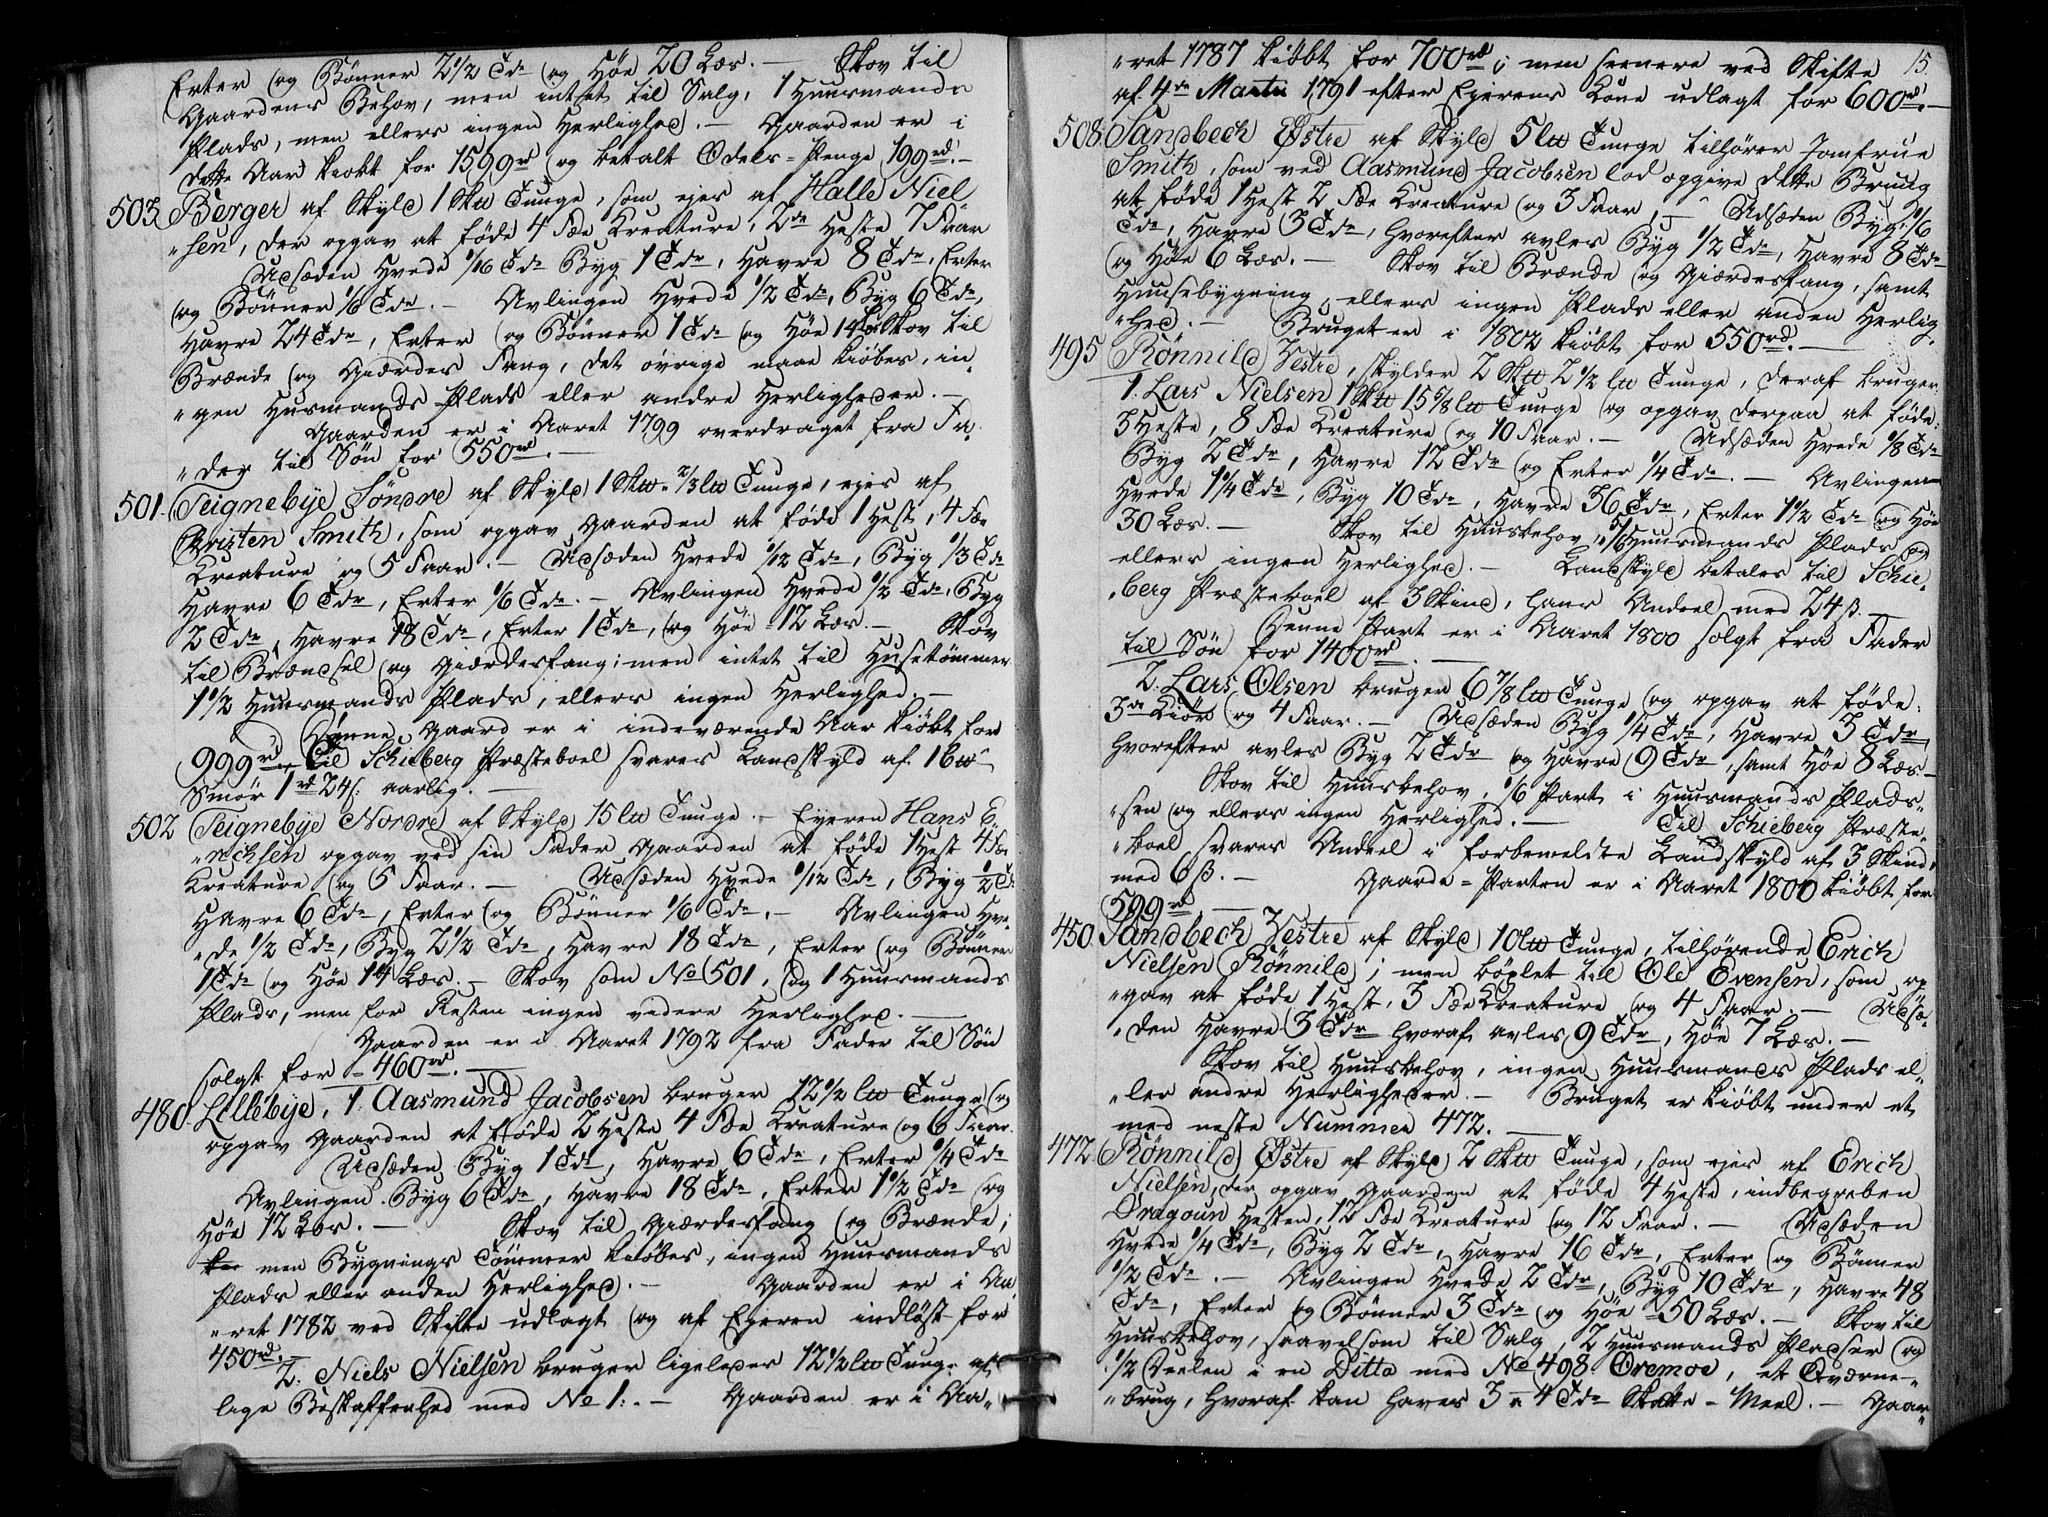 Erter og Bönner 2 1/2 Tdr og Höe 20 Læs. — Skov til
Gaardens Behov, men intet til Salg, 1 Huusmands
Plads, men ellers ingen Herlighed. — Gaarden er i
dette Aar kiøbt for 1599rd og betalt Odels-Penge 199rd. —
503 Berger af Skyld 1 Sk℔ Tunge, som ejes af Halle Niel
"sen, der opgav at föde 4 Fæ Kreature, 2de Heste 7 Faar
Udsæden Hvede 1/16 Tdr Byg 1 Tdr, Havre 8 Tdr, Erter
og Bönner 1/6 Tdr. — Avlingen Hvede 1/2 Tdr, Byg 6 Tdr,
Havre 24 Tdr, Erter og Bönner 1 Tdr og Höe 14 Læs Skov til
Brænde og Giærdes Fang, det övrige maae kiöbes, in-
"gen Husmands Plads eller andre Herligheder. —
Gaarden er i Aaret 1799 overdraget fra Fa-
"der til Sön for 550rd. —
501. Teignebÿe Söndre af Skyld 1 Sk℔ 2/3 l℔ Tunge, ejes af
Christen Smith, som opgav Gaarden at föde 1 Hest, 4 Fæ
Kreature og 5 Faar. — Udsæden Hvede 1/12 Tdr, Byg 1/3 Tdr
Havre 6 Tdr, Erter 1/6 Tdr. — Avlingen Hvede 1/2 Tdr, Byg
2 Tdr, Havre 18 Tdr, Erter 1 Tdr, og Höe 12 Læs. — Skov
til Brændsel og Giærdesfang; men intet til Husetömmer
1 1/2 Huusmands Plads, ellers ingen Herlighed. —
Denne Gaard er i indeværende Aar kiöbt for
999rd. Til Schieberg Præsteboel svares Landskyld af 1 b℔
Smör 1rd 24ß: aarlig. —
502 Teignebÿe Nordre af Skyld 15 l℔ Tunge. — Eyeren Hans E-
"richsen opgav ved sin Fader Gaarden at föde 1 Hest 4 Fæ
Kreature og 5 Faar. — Udsæden Hvede 1/12 Tdr, Byg 1/2 Tdr
Havre 6 Tdr, Erter og Bönner 1/6 Tdr. — Avlingen Hve-
"de 1/2 Tdr, Byg 2 1/2 Tdr, Havre 18 Tdr, Erter og Bönner
1 Tdr og Höe 14 Læs. — Skov som No 501, og 1 Huusmands
Plads, men for Resten ingen videre Herlighed. —
Gaarden er i Aaret 1792 fra Fader til Sön
solgt for 460rd. —
480. Lillebÿe, 1. Aasmund Jacobsen bruger 12 1/2 l℔ Tunge og
opgav Gaarden at föde 2 Heste 4 Fæ Kreature og 6 Faar.
Udsæden Byg 1 Tdr, Havre 6 Tdr, Erter 1/4 Tdr
Avlingen Byg 6 Tdr, Havre 18 Tdr, Erter 1 1/2 Tdr og
Höe 12 Læs. — Skov til Giærdesfang og Brænde;
men Bygnings Tömmer kiöbes, ingen Huusmands
Plads eller anden Herlighed. — Gaarden er i Aa-
"ret 1782 ved Skifte udlagt og af Eyeren indlöst for
450rd. —
2. Niels Nielsen bruger ligeledes 12 1/2 l℔ Tunge af
lige Beskaffenhed med No 1. — Gaarden er i Aa-
15.
"ret 1787 kiöbt for 700rd; men seenere ved Skifte
af 4de Martii 1791 efter Eyerens Kone udlagt for 600rd. —
508. Sandbech Østre af Skyld 5 l℔ Tunge tilhører Jomfrue
Smith, som ved Aasmund Jacobsen lod opgive dette Brug
at föde 1 Hest 2 Fæ Kreature og 3 Faar, — Udsæden Byg 1/6
Tdr, Havre 3 Tdr, hvorefter avles Byg 1/2 Tdr, Havre 8 Tdr
og Höe 6 Læs. — Skov til Brænde og Giærdesfang, samt
Huusebygning, ellers ingen Plads eller anden Herlig-
"hed. — Bruget er i 1802 kiöbt for 550rd. —
495 Rönnild Vestre, skylder 2 Sk℔ 2 1/2 l℔ Tunge, deraf bruger
1. Lars Nielsen 1 Sk℔ 15 5/8 l℔ Tunge og opgav derpaa at föde:
3 Heste, 8 Fæ Kreature og 10 Faar. — Udsæden Hvede 1/8 Tdr
Byg 2 Tdr, Havre 12 Tdr og Erter 1/4 Tdr. — Avlingen
Hvede 1 1/4 Tdr, Byg 10 Tdr, Havre 36 Tdr, Erter 1 1/2 Tdr og Höe
30 Læs. — Skov til Huusbehov, 5/6 Huusmands Plads og
ellers ingen Herlighed. — Landskyld betales til Schie-
"berg Præsteboel af 3 Skind, hans Andeel med 24ß. —
Denne Part er i Aaret 1800 solgt fra Fader
til Sön for 1400rd. —
2. Lars Olsen bruger 6 7/8 l℔ Tunge og opgav at föde:
3de Kiör og 4 Faar. — Udsæden Byg 1/4 Tdr, Havre 3 Tdr
hvorefter avles Byg 2 Tdr og Havre 9 Tdr samt Höe 8 Læs —
Skov til Huusbehov, 1/6 Part i Huusmands Plads-
"sen og ellers ingen Herlighed. — Til Schieberg Præste-
"boel svares Andeel i forbemeldte Landskyld af 3 Skind,
med 6ß. — Gaarde-Parten er i Aaret 1800 kiöbt for
599rd —
450. Sandbech Vestre af Skyld 10 l℔ Tunge, tilhörende Erich
Nielsen Rönnild; men böxlet til Ole Evensen, som op
"gav at föde 1 Hest, 3 Fæ Kreature og 4 Faar. — Udsæ-
"den Havre 3 Tdr hvoraf avles 9 Tdr, Höe 7 Læs. —
Skov til Huusbehov, ingen Huusmands Plads el-
"ler andre Herligheder. — Bruget er kiöbt under et
med neste Nummer 472. —
472 Rönnild Østre af Skyld 2 Sk℔ Tunge, som ejes af Erich
Nielsen, der opgav Gaarden at föde 4 Heste, indbegreben
Dragoun Hesten, 12 Fæ Kreature og 12 Faar. — Udsæden
Hvede 1/4 Tdr, Byg 2 Tdr, Havre 16 Tdr, Erter og Bönner
1/2 Tdr. — Avlingen Hvede 2 Tdr, Byg 10 Tdr, Havre 48
Tdr, Erter og Bönner 3 Tdr og Höe 50 Læs. — Skov til
Huusbehov, saavelsom til Salg, 2 Huusmands Pladser og
1/2 Deelen i en Ditto med No 498. Oremoe, et Qværne-
"brug, hvoraf kan haves 3 a 4 Tdr Skatte-Meel. — Gaar-